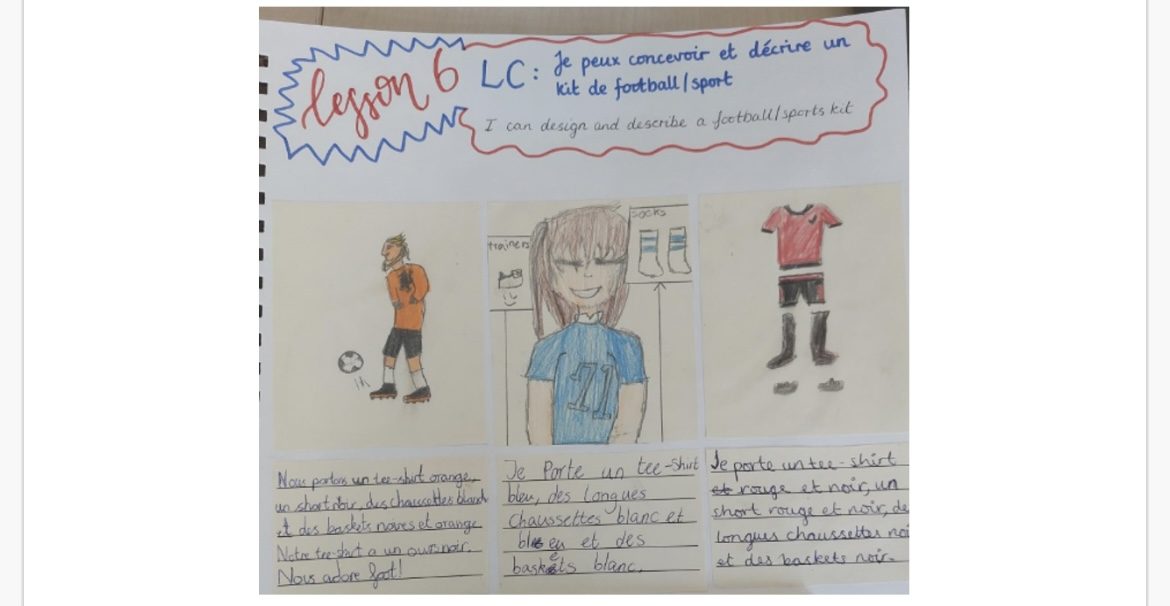 lesson 6
LC: Je peux concevoir et décrire un
kit de football/sport
I can design and describe a football/sports kit
trainers
socks
71
Nous portons un tee-shirt orange,
un short noir, des chaussettes
et des baskets noires et orange
Notre tee-shirt a un ours noir.
Nous adore foot!
Je Porte un tee-shirt
bleu, des longues
chaussettes blanc et
bleu et des
baskets blanc.
Je porte un tee-shirt
rouge et noir, un
short rouge et noir, de
longues chaussettes noi
et des baskets noir.